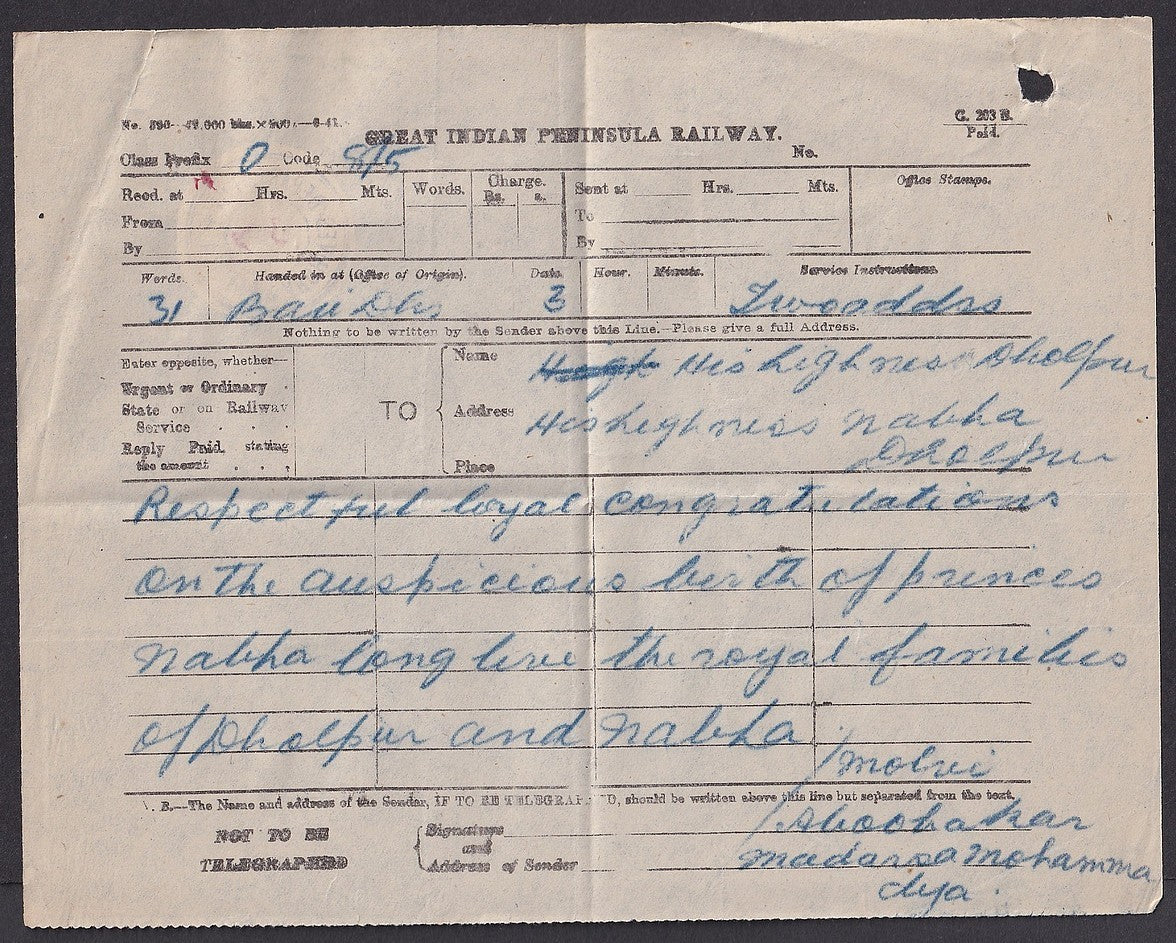 No. 390- 47.000 bks.×200.—6-41.
G. 203 B.
Paid.
GREAT INDIAN PENINSULA RAILWAY.
Class Prefix O Code 8/5 No.
Recd. at Hrs. Mts. Words. Charge. Sent at Hrs. Mts. Office Stamps.
Rs. a.
From To
By By
Words. Handed in at (Office of Origin). Date. Hour. Minute. Service Instructions.
31 Bari 3 Twoaddrs
Nothing to be written by the Sender above this Line.—Please give a full Address.
Enter opposite, whether—
Urgent or Ordinary
State or on Railway
Service
Reply Paid stating
the amount
TO
Name His highness Dholpur
Address His highness Nabha
Place Dholpur
Respectful loyal congratulations
on the auspicious birth of princes
Nabha long live the royal families
of Dholpur and Nabha
/ Molvi
B.—The Name and address of the Sender, IF TO BE TELEGRAPHED, should be written above this line but separated from the text.
Aboobakar
NOT TO BE
TELEGRAPHED
Signature
and
Address of Sender
Madarsa Mohamma
dya.